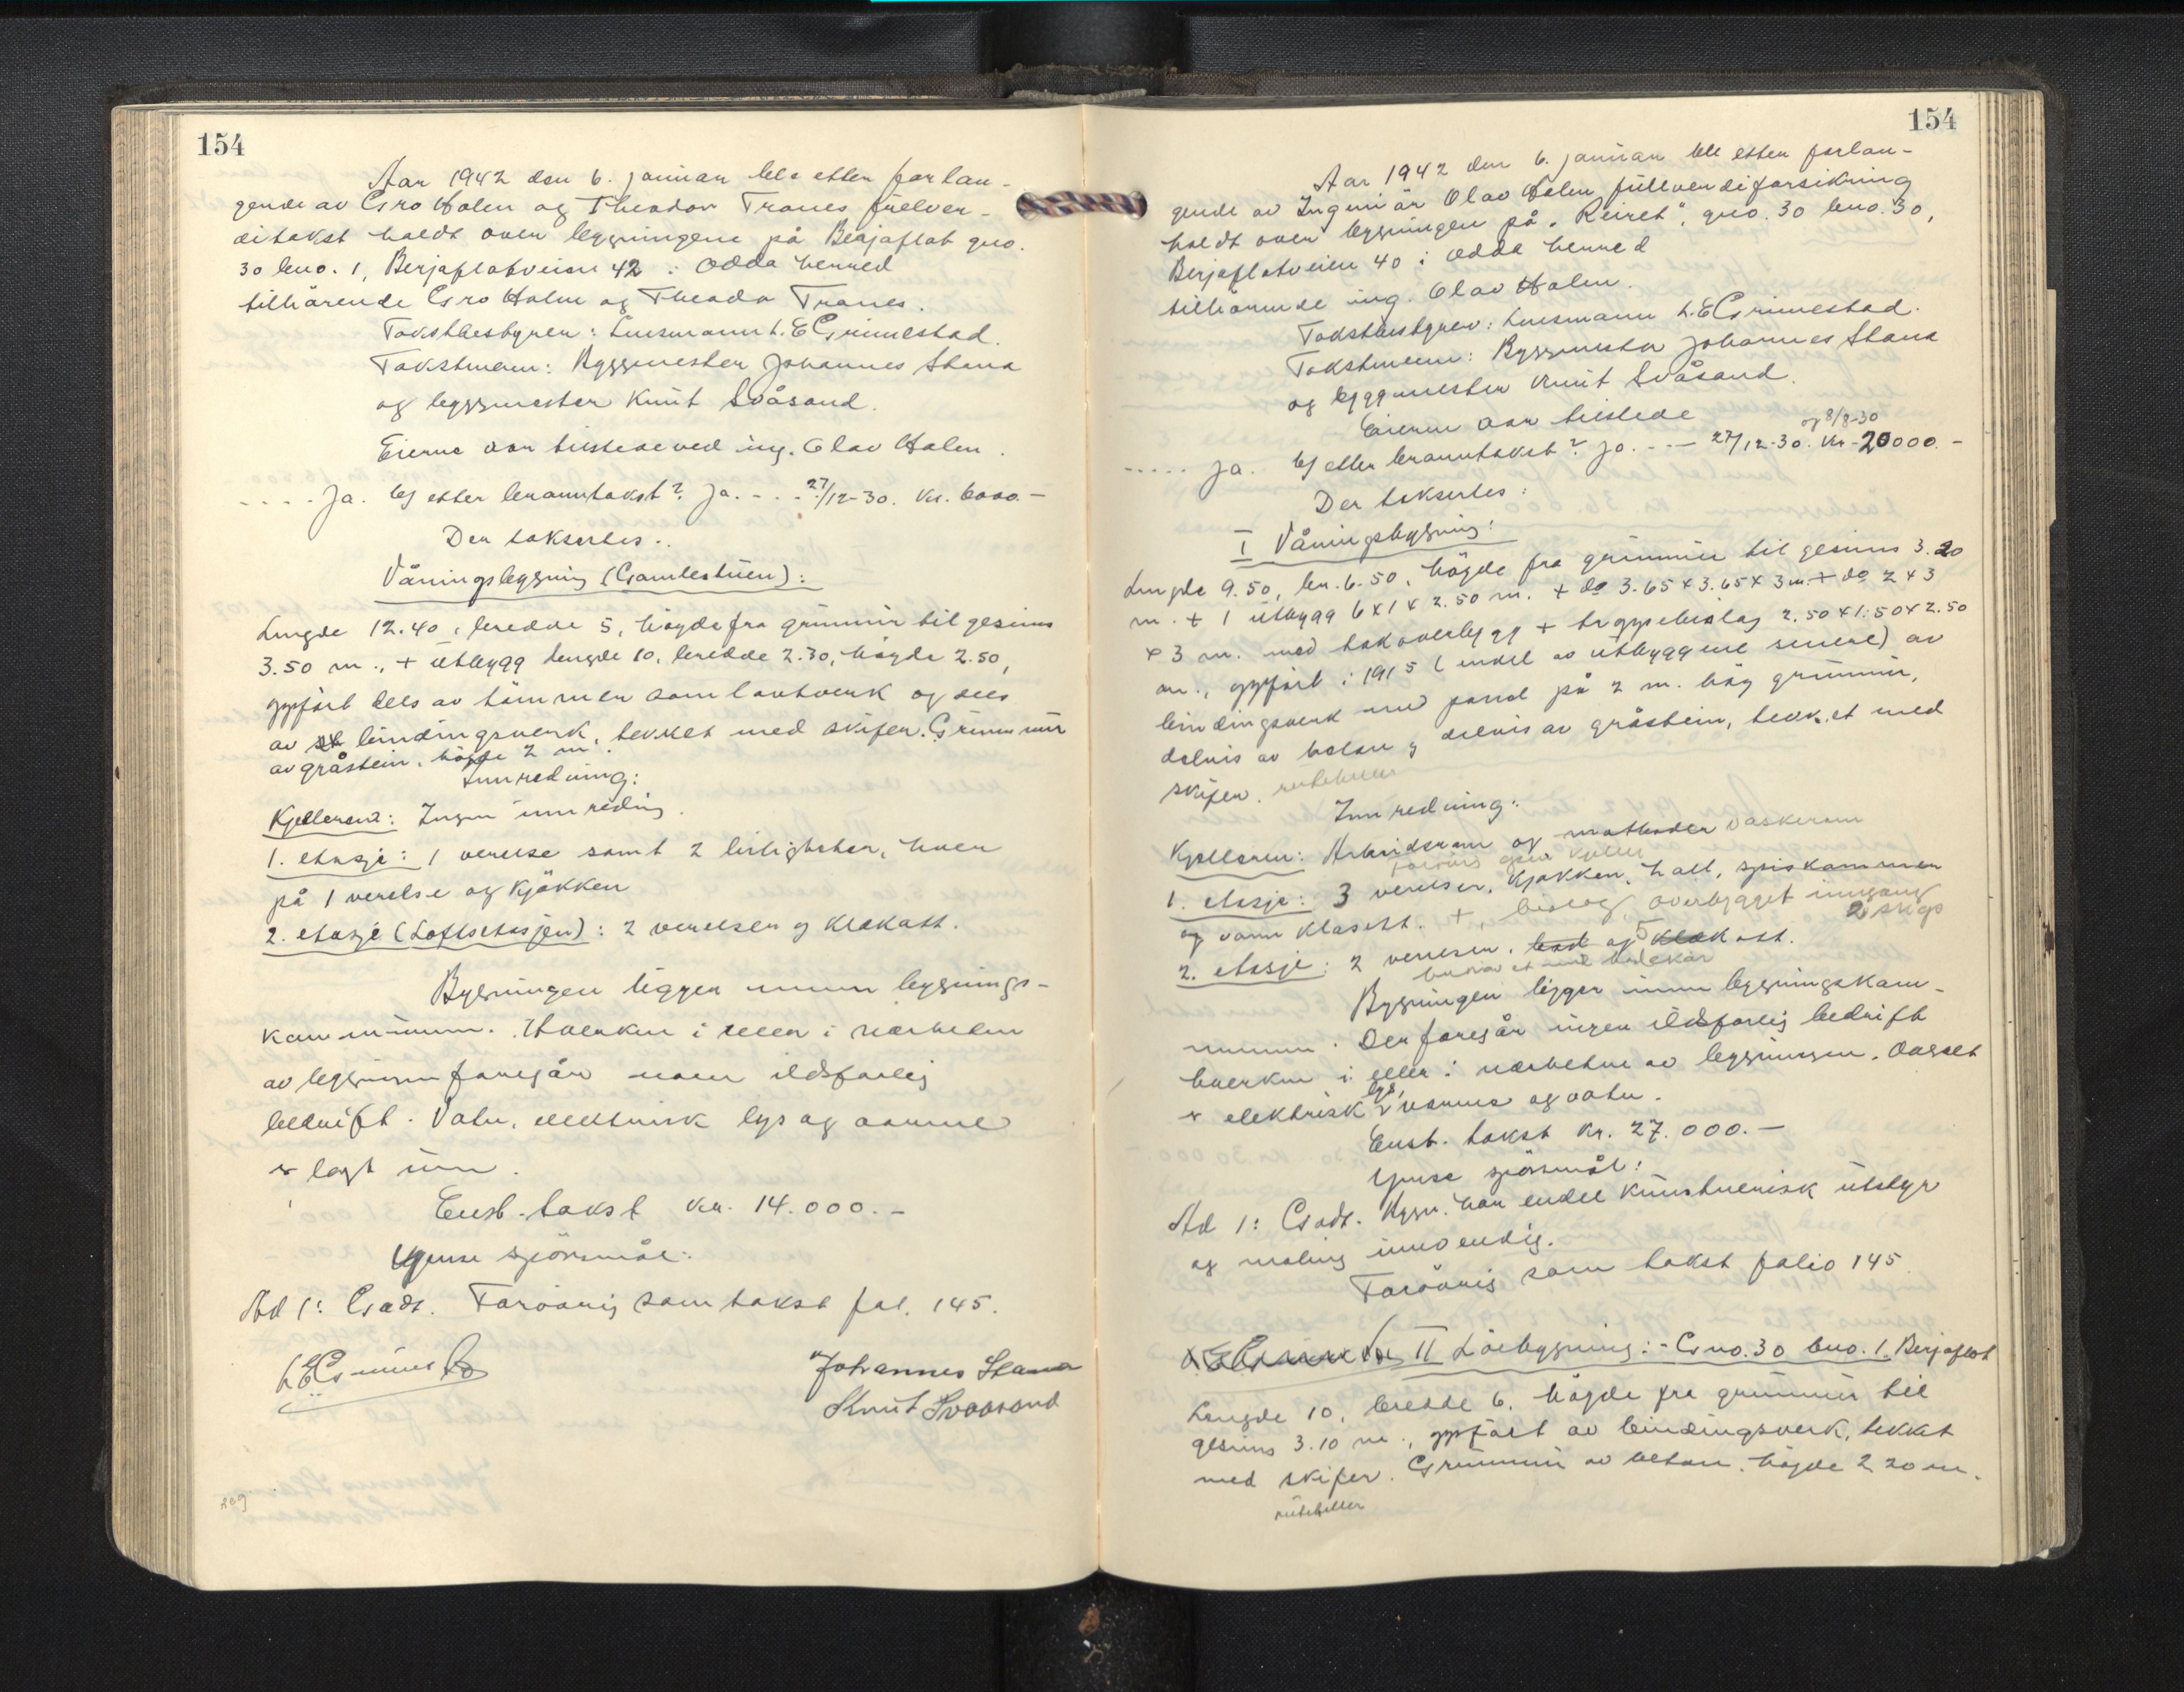 154
Aar 1942 den 6. januar ble etter forlan-
gende av Gro Holen og Theodor Tranes fullver-
ditakst holdt over bygningene på Berjaflot gno.
30 bno. 1, Berjaflotveien 42 i Odda herred
tilhörende Gro Holen og Theodor Tranes.
Takstbestyrer: Lensmann L. E Grimestad.
Takstmenn: Byggmester Johannes Stana
og byggmester Knut Svåsand.
Eierne var tilstede ved ing. Olav Holen.
- - - - Ja. Ej etter branntakst? Ja. - - - 27/12-30. Kr. 6000.-
Der taksertes:
Våningsbygning (Gamlestuen):
Lengde 12.40, bredde 5, höyde fra grunnmur til gesims
3.50 m., + utbygg lengde 10, bredde 2.30, höyde 2.50,
oppfört dels av tömmer som laftverk og dels
av bindingsverk, tekket med skifer. Grunnmur
av gråstein, höyde 2 m.
Innredning:
Kjelleren: Ingen innredning.
1. etasje: 1 verelse samt 2 leiligheter, hver
på 1 verelse og kjökken
2. etasje (Loftsetasjen): 2 verelser og klekott.
Bygningen ligger innen bygnings-
kommunen. Hverken i eller i nærheten
av bygningen foregår noen ildsfarlig
bedrift. Vatn, elektrisk lys og varme
er lagt inn.
Enst. takst kr. 14.000.-
Ymse spörsmål:
Ad 1: Godt. Forövrig som takst fol. 145.
L E Grimestad
Johannes Stana
Knut Svaasand
154
Aar 1942 den 6. januar ble etter forlan-
gende av Ingeniör Olav Holen fullverdiforsikring
holdt over bygningen på "Reiret", gno. 30 bno. 30,
Berjaflotveien 40 i Odda herred
tilhörende ing. Olav Holen.
Takstbestyrer: Lensmann L. E Grimestad.
Takstmenn: Byggmester Johannes Stana
og byggmester Knut Svåsand.
Eieren var tilstede
og 8/8-30
- - - - - Ja. Ej etter branntakst? Ja. - - - 27/12-30. Kr. 20000.-
Der taksertes:
I Våningsbygning:
Lengde 9.50, br. 6.50, höyde fra grunnmur til gesims 3.20
m. + 1 utbygg 6 x 1 x 2.50 m. + do 3.65 x 3.65 x 3 m. + do 2 x 3
x 3 m. med takoverbygg + trappebislag 2.50 x 1.50 x 2.50
m., oppfört i 1915 (endel av utbyggene senere) av
bindingsverk med panel på 2 m. höy grunnmur,
delvis av betong delvis av gråstein, tekket med
skifer. ruteheller
Innredning:
Kjelleren: Arbeidsrum og matboder vaskerum
1. etasje: 3 verelser, kjökken, hall, spiskammer
og vann klosett. +, bislag, overbygget inngang
2. etasje: 2 verelser, bad og 5 klekott. 2 skap
Bygningen ligger innen bygningskom-
munen. Der foregår ingen ildsfarlig bedrift
hverken i eller i nærheten av bygningen. Innlagt
er elektrisk lys, varme og vatn.
Enst. takst kr. 27.000.-
Ymse spörsmål:
Ad 1: Godt. Bygn. har endel kunstnerisk utstyr
og maling innvendig.
Forövrig som takst folio 145
II Löebygning: - Gno. 30 bno. 1. Berjaflot
Lengde 10, bredde 6, höyde fra grunnmur til
gesims 3.10 m., oppfört av bindingsverk, tekket
med skifer. Grunnmur av betong, höyde 2 20 m.
ruteheller